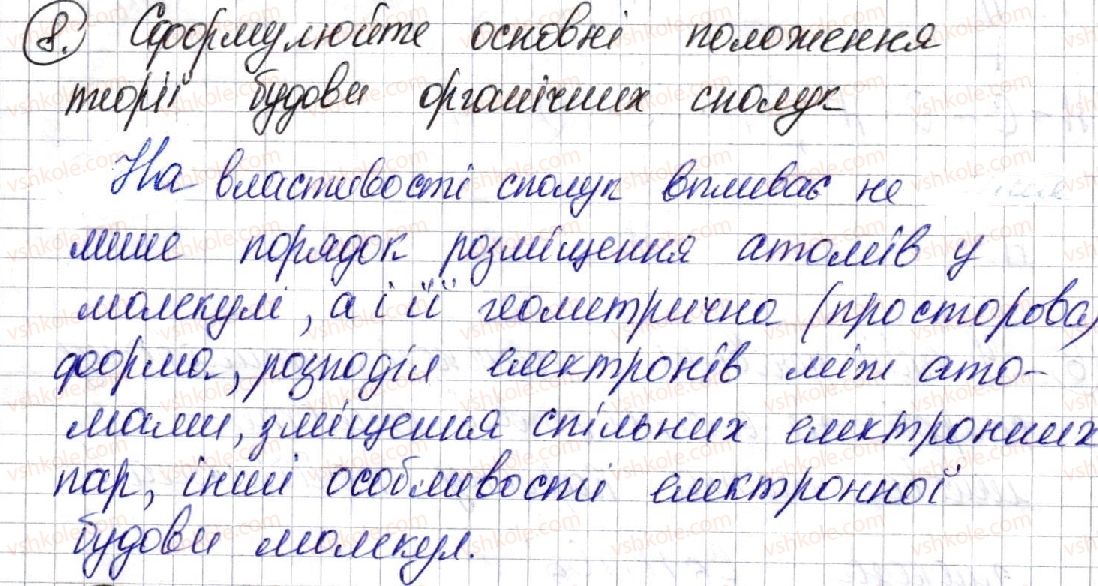 8. Сформулюйте основні положення
теорії будови органічних сполук
На властивості сполук впливає не
лише порядок розміщення атомів у
молекулі, а і її геометрична (просторова)
форма, розподіл електронів між ато-
мами, зміщення спільних електронних
пар, інші особливості електронної
будови молекул.